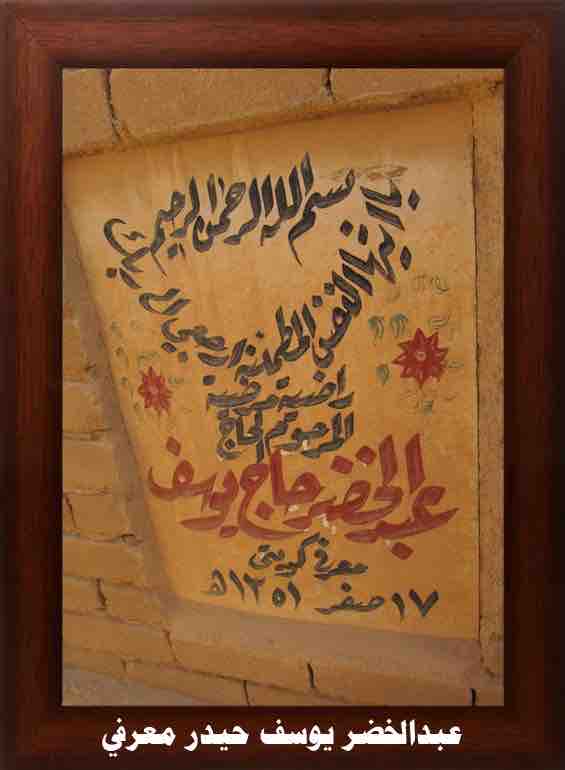 بسم الله الرحمن الرحيم
يا ايتها النفس المطمئنة ارجعي الى ربك
راضية مرضية
المرحوم الحاج
عبدالخضر حاج يوسف
معرفي كويتي
١٧ صفر ١٣٥١ هـ
عبدالخضر يوسف حيدر معرفي